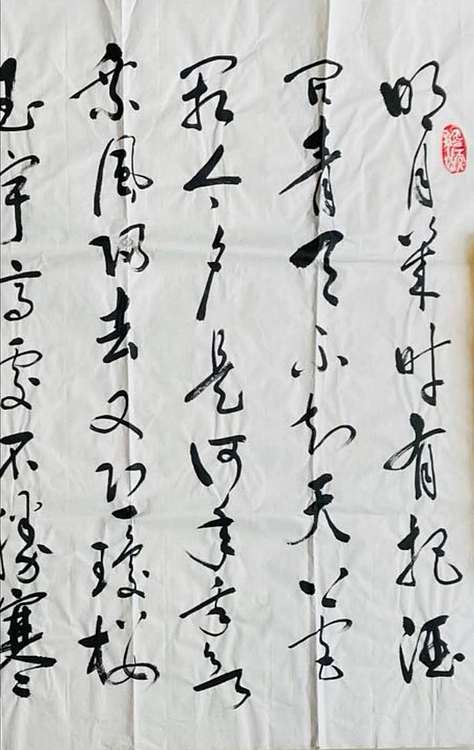 明月幾时有把酒
问青天不知天上宫
阙今夕是何年我欲
乘風归去又恐瓊楼
玉宇高處不勝寒